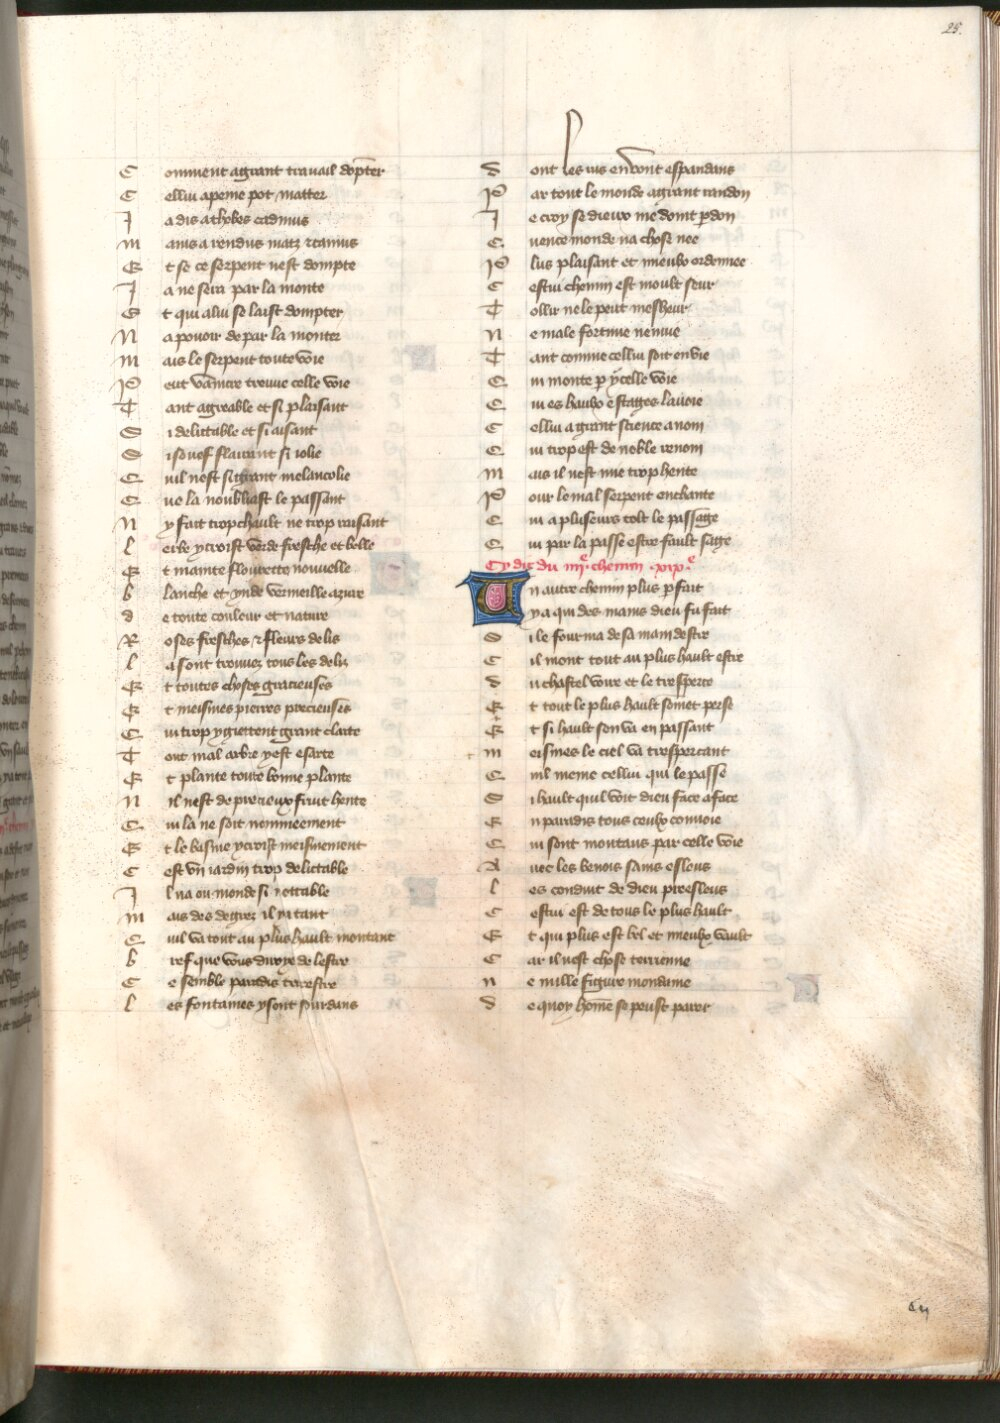 25.
Comment a grant travail dopter
Cellui a peine pot matter
Jadis a thebes cadmus
Mains a rendus matz et camus
Et se ce serpent nest dompte
Ja ne sera par la monte
Et qui a lui se laist dompter
Na pouoir de par la monter
Mais le serpent toute voie
Peut vaincre treuue celle voie
Tant agreable et si plaisant
Si delictable et si aisant
Si souef flairant si iolie
Quil nest si grant melancolie
Que la noubliast le passant
Ny fait trop chault ne trop
lerbe y croist verde fresche et belle
Et mainte flourette nouuelle
blanche et ynde vermeille azure
de toute couleur et nature
Roses fresches et fleurs de lis
la sont trouuez tous les deliz
Et toutes choses gracieuses
Et meismes pierres precieuses
Qui trop y giettent grant clarte
Tout mal arbre y est esarte
Et plante toute bonne plante
Nil nest de precieux fruit hente
Qui la ne soit nommeement
Et le basme y croist meismement
Cest vn iardin trop delictable
Il na ou monde si
Mais des degrez il ni tant
Quil va tout au plus hault montant
bref que vous diroye de lestre
Ce semble paradis terrestre
les fontaines y sont sourdans
dont les rus en vont espandans
Par tout le monde a grant randon
Je croy se dieux me doint pdon
Quence monde na chose nee
Plus plaisant et mieulx ordennee
Cestui chemin est moult seur
Tollir ne le peut mesheur
Ne male fortune ne nue
Tant comme cellui soit en vie
Qui monte p ycelle voie
Qui es haulx estages lauoie
Cellui a grant science a nom
Qui trop est de noble renom
Mais il nest mie trop hente
Pour le mal serpent enchante
Qui a pluseurs tolt le passage
Qui par la passe estre fault sage
Cy dit du iiije chemin .xixe.
Un autre chemin plus pfait
y a qui des mains dieu fu fait
Si le fourma de sa main destre
Cil mont tout au plus hault estre
du chastel voire et le tresperce
Et tout le plus hault somet perse
Et si hault son va en passant
Meismes le ciel va trespercant
Quil meine cellui qui le passe
Si hault quil voit dieu face a face
En paradis tous ceulx conuoie
Qui sont montans par celle voie
Auec les benois sains esleus
les conduit de dieu preesleus
Cestui est de tous le plus hault
Et qui plus est bel et mieulx vault
Car il nest chose terrienne
Ne mille figure mondaine
de quoy home se peust parer